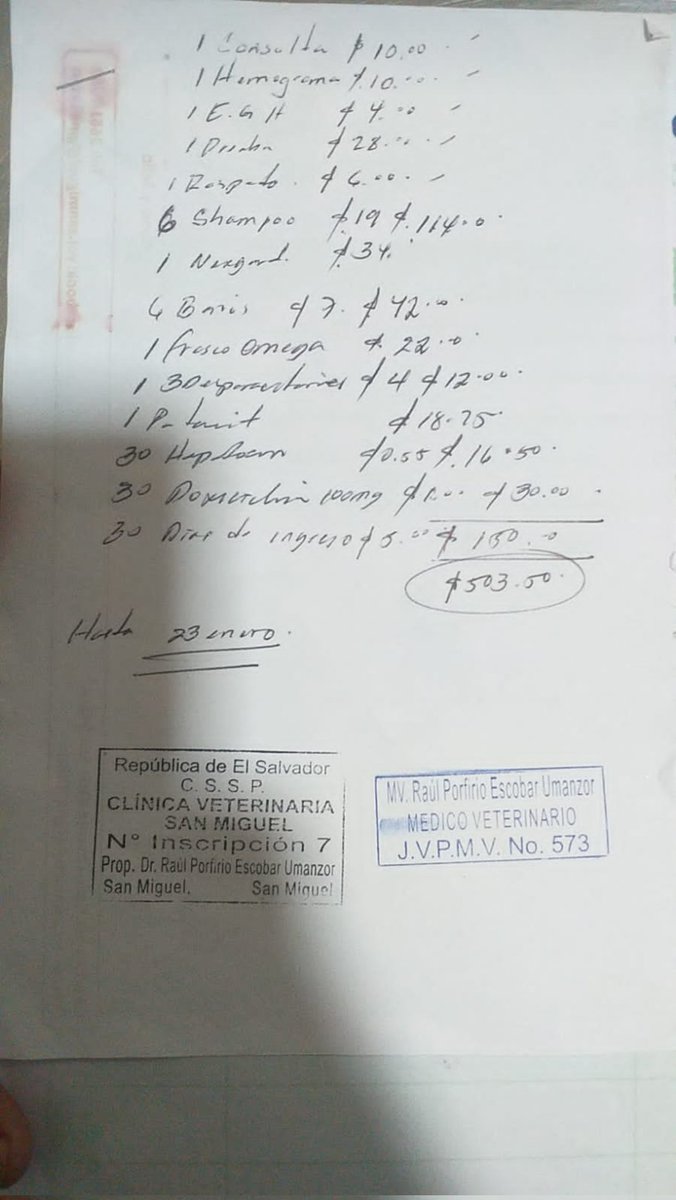 1 Consulta $10.00
1 Hemograma $.10.00
1 E.G.H $4.00
1 $28.00
1 Raspado. $6.00
6 Shampoo $.19 $.114.0
1 Nexgard. $34.
6 Baños $7. $42.00
1 frasco Omega $.22.0
1 3 Desparasitaciones $4 $12.00
1 $18.75
30 $0.55 $.16.50
30 Doxiciclina 100mg $1.00 $30.00
30 Dias de ingreso $5.00 $150.0
$503.50
Hasta 23 enero.
República de El Salvador
C. S. S. P.
CLÍNICA VETERINARIA
SAN MIGUEL
N° Inscripción 7
Prop. Dr. Raúl Porfirio Escobar Umanzor
San Miguel, San Miguel
MV. Raúl Porfirio Escobar Umanzor
MEDICO VETERINARIO
J.V.P.M.V. No. 573